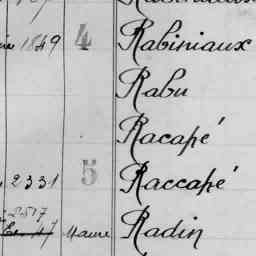 1849 4 Rabiniaux
Rabu
Racapé
2331 5 Raccapé
2517
Maure Radin